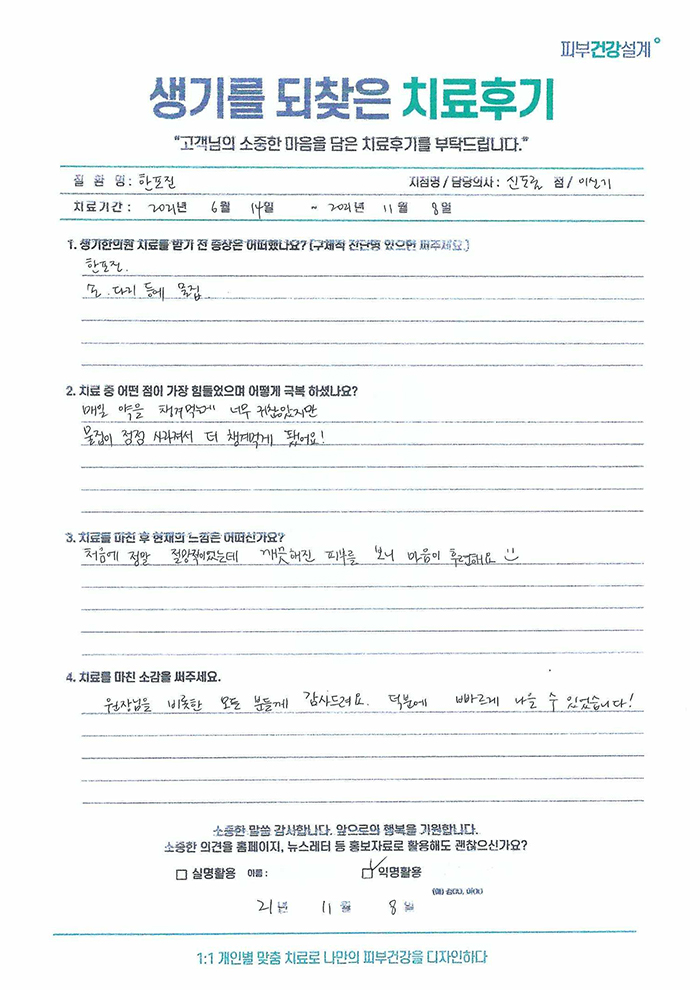 피부건강설계
생기를 되찾은 치료후기
"고객님의 소중한 마음을 담은 치료후기를 부탁드립니다."
질 환 명 : 한포진 지점명 / 담당의사 : 신도림 점 / 이신기
치료기간 : 2021년 6월 14일 ~ 2021년 11월 8일
1. 생기한의원 치료를 받기 전 증상은 어떠했나요? (구체적 진단명 있으면 써주세요.)
한포진.
손. 다리 등에 물집.
2. 치료 중 어떤 점이 가장 힘들었으며 어떻게 극복 하셨나요?
매일 약을 챙겨먹는게 너무 귀찮았지만
물집이 점점 사라져서 더 챙겨먹게 됐어요!
3. 치료를 마친 후 현재의 느낌은 어떠신가요?
처음에 정말 절망적이었는데 깨끗해진 피부를 보니 마음이 후련해요 :)
4. 치료를 마친 소감을 써주세요.
원장님을 비롯한 모든 분들께 감사드려요. 덕분에 빠르게 나을 수 있었습니다!
소중한 말씀 감사합니다. 앞으로의 행복을 기원합니다.
소중한 의견을 홈페이지, 뉴스레터 등 홍보자료로 활용해도 괜찮으신가요?
□ 실명활용 이름 : ☑ 익명활용
(예) 김OO, 이OO
21년 11월 8일
1:1 개인별 맞춤 치료로 나만의 피부건강을 디자인하다